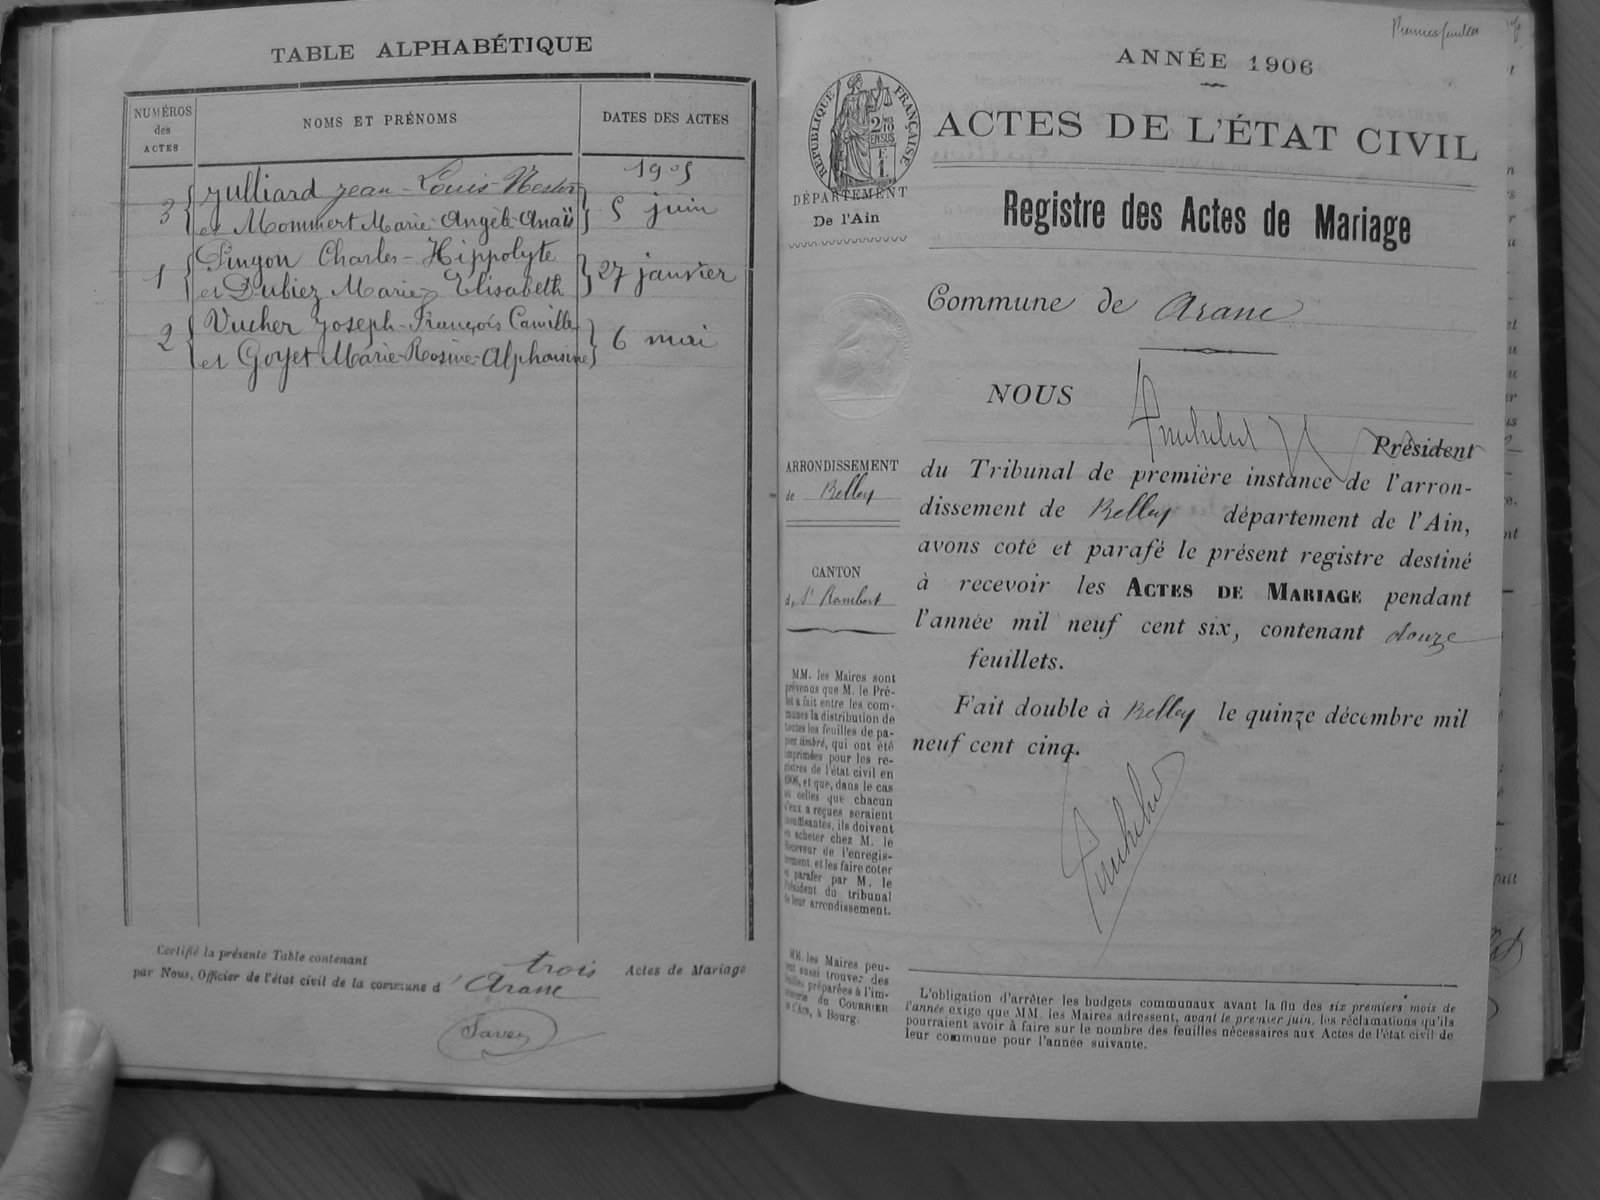 TABLE ALPHABÉTIQUE
NUMÉROS
des
ACTES
NOMS ET PRÉNOMS
DATES DES ACTES
1905
3
Julliard Jean-Louis-Nestor
et Mommert Marie-Angèle-Anaïs
5 juin
1
Pingon Charles-Hippolyte
et Dubiez Marie Elisabeth
27 janvier
2
Vucher Joseph-François Camille
et Goyet Marie-Rosine-Alphonsine
6 mai
Certifié la présente Table contenant trois Actes de Mariage
par Nous, Officier de l'état civil de la commune d'Aranc
Savey
Premier feuillet
ANNÉE 1906
ACTES DE L'ÉTAT CIVIL
RÉPUBLIQUE FRANÇAISE
2/10
EN SUS
F
1
DÉPARTEMENT
De l'Ain
Registre des Actes de Mariage
Commune de Aranc
NOUS
Président
du Tribunal de première instance de l'arron-
dissement de Belley département de l'Ain,
avons coté et parafé le présent registre destiné
à recevoir les ACTES DE MARIAGE pendant
l'année mil neuf cent six, contenant douze
feuillets.
Fait double à Belley le quinze décembre mil
neuf cent cinq.
ARRONDISSEMENT
de Belley
CANTON
de St Rambert
MM. les Maires sont
prévenus que M. le Pré-
fet a fait entre les com-
munes la distribution de
toutes les feuilles de pa-
pier timbré, qui ont été
imprimées pour les re-
gistres de l'état civil en
1906, et que, dans le cas
où celles que chacun
d'eux a reçues seraient
insuffisantes, ils doivent
en acheter chez M. le
Receveur de l'enregis-
trement et les faire coter
et parafer par M. le
Président du tribunal
de leur arrondissement.
MM. les Maires peu-
vent aussi trouver des
feuilles préparées à l'im-
primerie du COURRIER
de l'Ain, à Bourg.
L'obligation d'arrêter les budgets communaux avant la fin des six premiers mois de
l'année exige que MM. les Maires adressent, avant le premier juin, les réclamations qu'ils
pourraient avoir à faire sur le nombre des feuilles nécessaires aux Actes de l'état civil de
leur commune pour l'année suivante.